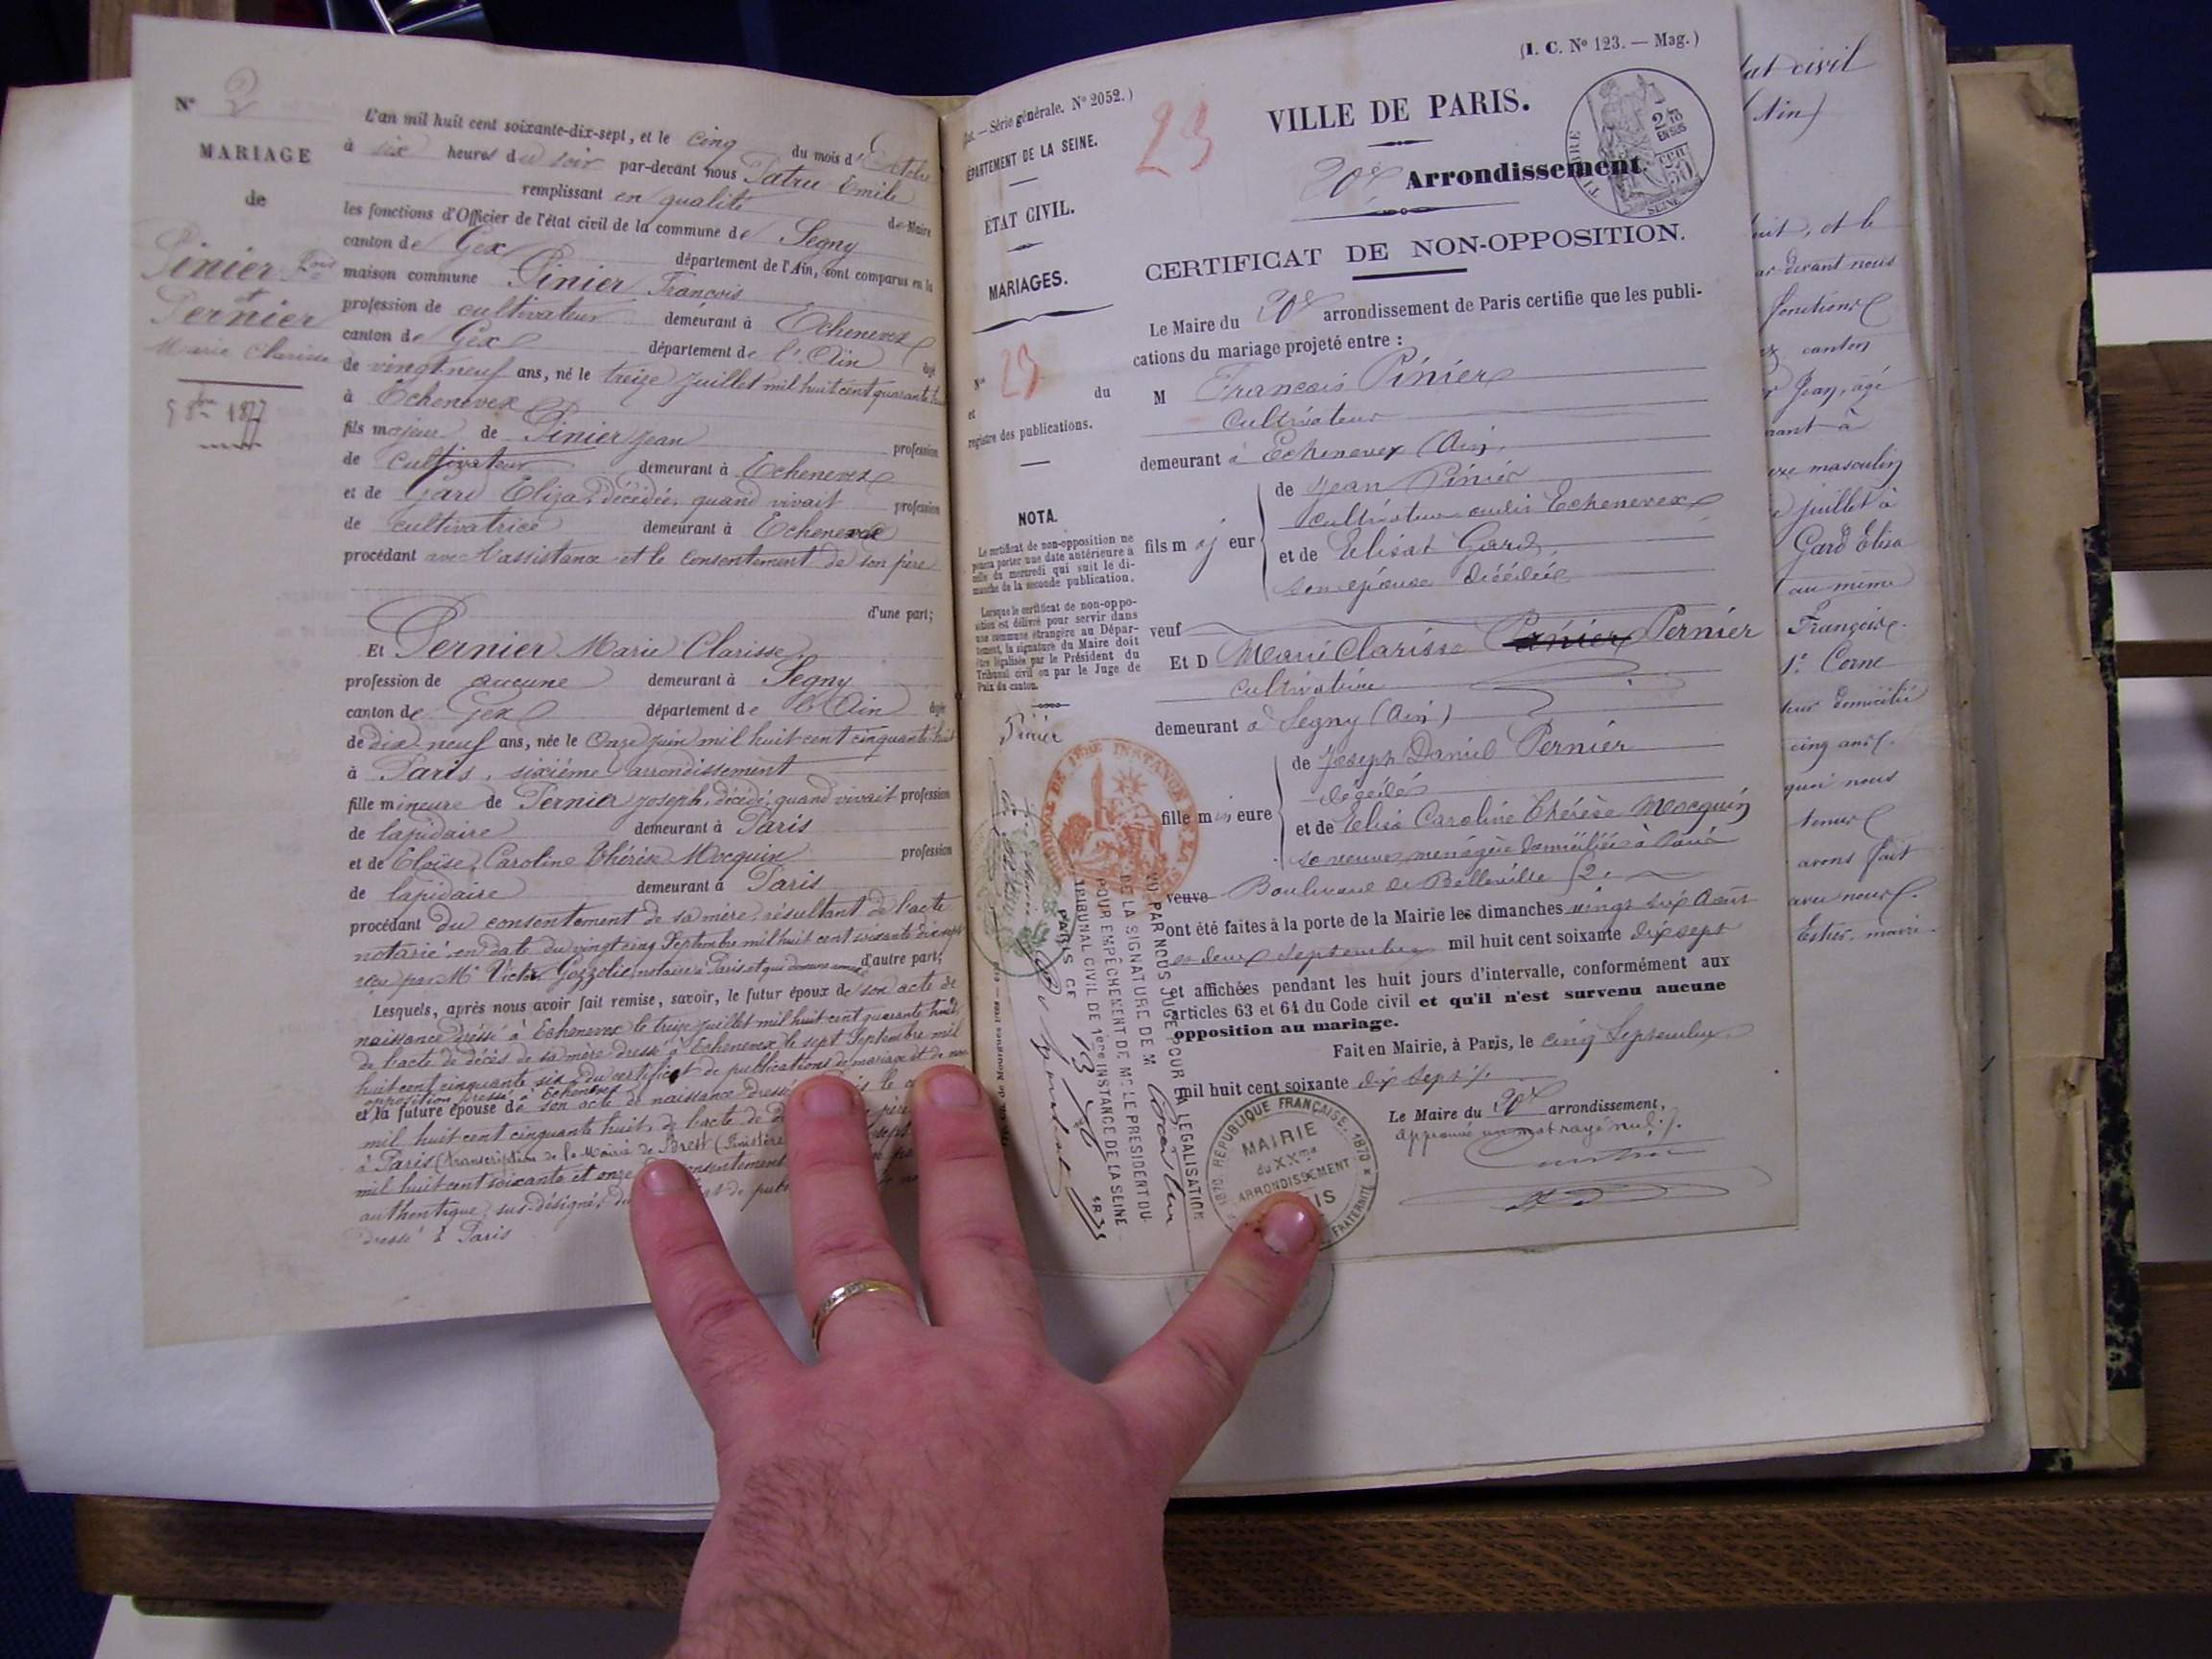 N° 2
MARIAGE
de
Pinier Fçois
et
Pernier
Marie Clarisse
5 8bre 1877
L'an mil huit cent soixante-dix-sept, et le cinq du mois d'Octobre
à six heures du soir par-devant nous Patru Emile
remplissant en qualité de Maire
les fonctions d'Officier de l'état civil de la commune de Segny
canton de Gex département de l'Ain, sont comparus en la
maison commune Pinier François
profession de cultivateur demeurant à Echenevex
canton de Gex département de l'Ain âgé
de vingt neuf ans, né le treize juillet mil huit cent quarante huit
à Echenevex
fils majeur de Pinier Jean profession
de cultivateur demeurant à Echenevex
et de Gard Eliza, décédée, quand vivait profession
de cultivatrice demeurant à Echenevex
procédant avec l'assistance et le consentement de son père
d'une part;
Et Pernier Marie Clarisse,
profession de aucune demeurant à Segny
canton de Gex département de l'Ain âgée
de dix-neuf ans, née le Onze juin mil huit cent cinquante huit
à Paris, sixième arrondissement
fille mineure de Pernier Joseph, décédé, quand vivait profession
de lapidaire demeurant à Paris
et de Eloïse, Caroline Thérèse Mocquin profession
de lapidaire demeurant à Paris
procédant du consentement de sa mère, résultant de l'acte
notarié en date du vingt cinq Septembre mil huit cent soixante dix sept
reçu par Me Victor Gozzolie, notaire à Paris et qui demeure annexé d'autre part;
Lesquels, après nous avoir fait remise, savoir, le futur époux de son acte de
naissance dressé à Echenevex le treize juillet mil huit cent quarante huit,
de l'acte de décès de sa mère dressé à Echenevex le sept Septembre mil
huit cent cinquante six, du certificat de publications de mariage et de non
opposition dressé à Echenevex
et la future épouse de son acte de naissance dressé à Paris le
mil huit cent cinquante huit, de l'acte de père
à Paris (transcription de la Mairie de Brest (Finistère
mil huit cent soixante et onze consentement
authentique, sus-désigné, du de publ
dressé à Paris
(I. C. N° 123. — Mag.)
Série générale. N° 2052.)
DÉPARTEMENT DE LA SEINE.
ÉTAT CIVIL.
MARIAGES.
N° 23 du
et
registre des publications.
NOTA.
Le certificat de non-opposition ne
pourra porter une date antérieure à
celle du mercredi qui suit le di-
manche de la seconde publication.
Lorsque le certificat de non-oppo-
sition est délivré pour servir dans
une commune étrangère au Dépar-
tement, la signature du Maire doit
être légalisée par le Président du
Tribunal civil ou par le Juge de
Paix du canton.
Pinier
23
VILLE DE PARIS.
20e Arrondissement.
TIMBRE
2/10 EN SUS
50 CEN
SEINE
CERTIFICAT DE NON-OPPOSITION.
Le Maire du 20e arrondissement de Paris certifie que les publi-
cations du mariage projeté entre :
M François Pinier
Cultivateur
demeurant à Echenevex (Ain)
fils majeur de Jean Pinier
cultivateur audit Echenevex
et de Elisat Gard,
son épouse décédée
veuf
Et D Marie Clarisse Pinier Pernier
Cultivatrice
demeurant à Segny (Ain)
fille mineure de Joseph Daniel Pernier
décédé
et de Elisa Caroline Thérèse Mocquin
sa veuve, ménagère domiciliée à Paris
veuve Boulevard de Belleville 52.
ont été faites à la porte de la Mairie les dimanches vingt six Août
et deux Septembre mil huit cent soixante dix sept
et affichées pendant les huit jours d'intervalle, conformément aux
articles 63 et 64 du Code civil et qu'il n'est survenu aucune
opposition au mariage.
Fait en Mairie, à Paris, le cinq Septembre
mil huit cent soixante dix sept.
Le Maire du 20e arrondissement,
approuvé un mot rayé nul.
RÉPUBLIQUE FRANÇAISE. 1870
MAIRIE
du XXme
ARRONDISSEMENT
FRATERNITÉ
TRIBUNAL DE 1ÈRE INSTANCE DE LA
VU PAR NOUS JUGE POUR LA LEGALISATION
DE LA SIGNATURE DE M
POUR EMPÊCHEMENT DE MR LE PRESIDENT DU
TRIBUNAL CIVIL DE 1ère INSTANCE DE LA SEINE
PARIS CE 13 7bre 187
état civil
(Ain)
huit, et le
par devant nous
fonctions
canton
Jean, âgé
demeurant à
sexe masculin
juillet à
Gard Elisa
au même
Françoise.
domicilié
cinq ans.
quoi nous
tenue
avons fait
avec nous.
maire